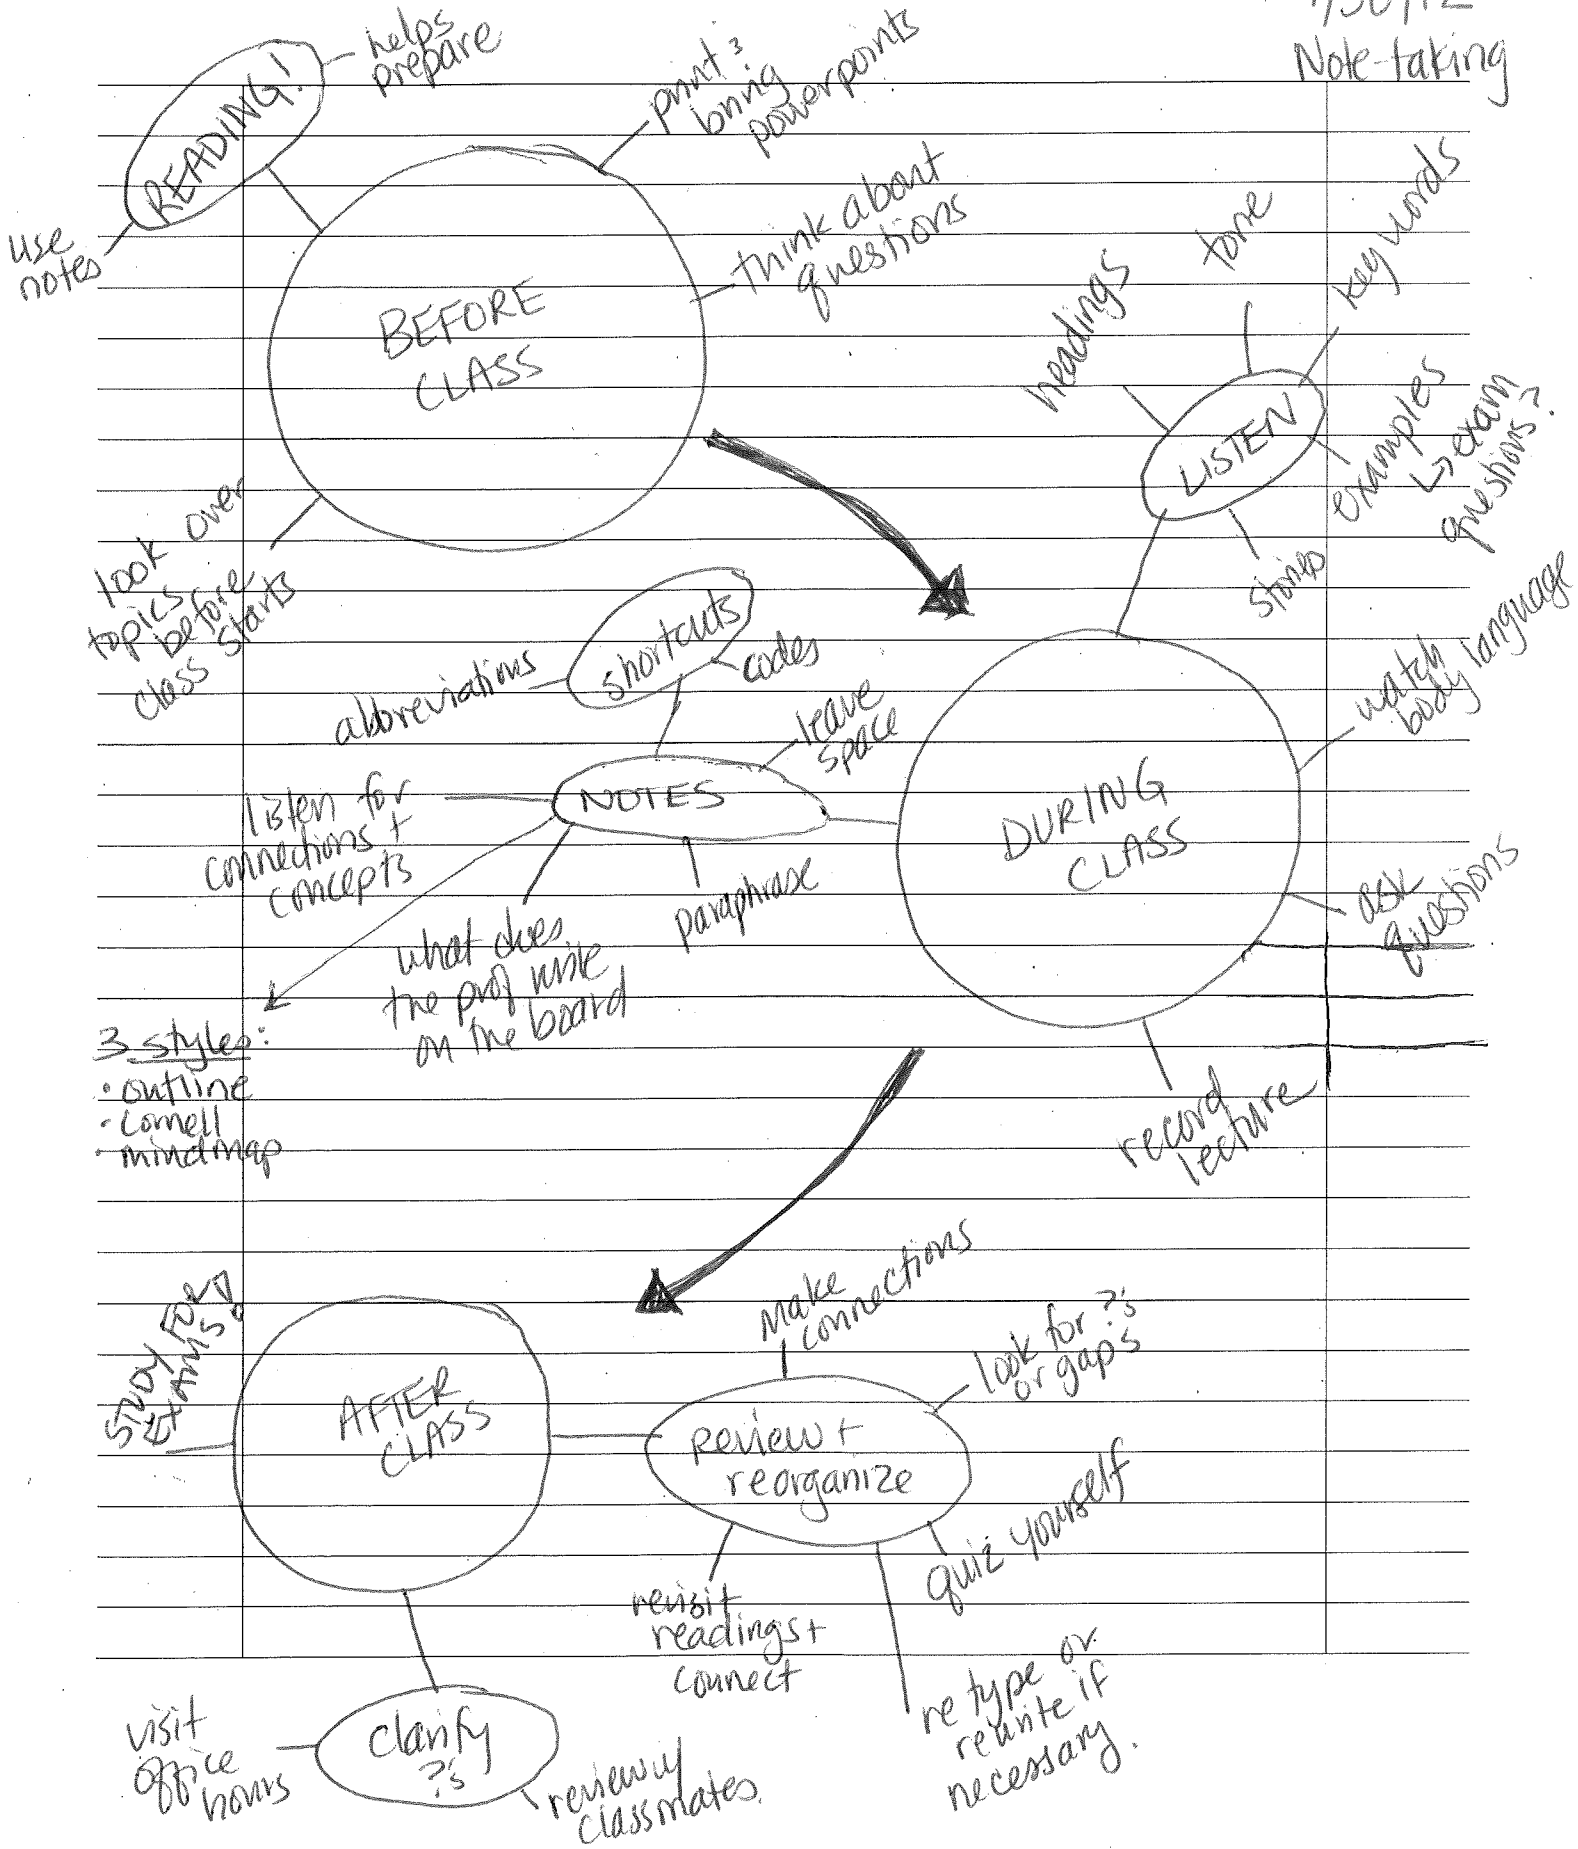 Note-taking
READING!
helps
prepare
use
notes
print &
bring
powerpoints
think about
questions
BEFORE
CLASS
look over
topics
before
class starts
LISTEN
headings
tone
key words
examples
↳ exam
questions?
stories
DURING
CLASS
watch
body language
ask
questions
record
lecture
NOTES
shortcuts
abbreviations
codes
leave
space
listen for
connections +
concepts
what does
the prof write
on the board
paraphrase
3 styles:
• outline
• Cornell
• mindmap
AFTER
CLASS
STUDY FOR
EXAMS!
review +
reorganize
make
connections
look for ?'s
or gaps
quiz yourself
retype or
rewrite if
necessary.
revisit
readings +
connect
clarify
?'s
visit
office
hours
review w/
classmates.